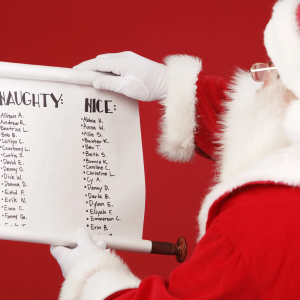 NAUGHTY:
Allison A.
Andrew R.
Beatrice L.
Bob B.
Caitlyn C.
Courtney L.
Curtis S.
David E.
Denny O.
Dick W.
Donna D.
Enid F.
Erik N.
Evan C.
Fanny G.
NICE:
Anna W.
Allie S.
Ben T.
Beth S.
Bonnie K.
Caroline C.
Christine L.
Cy A.
Danny D.
Darla B.
Dylan E.
Elijah F.
Emmerson C.
Erin B.